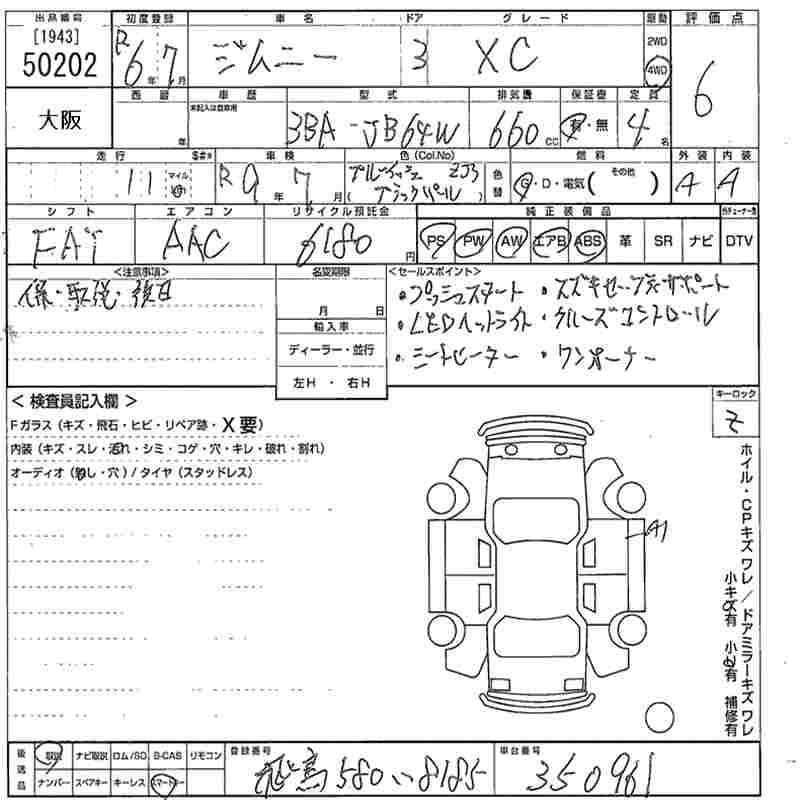 出品番号 初度登録 車名 ドア グレード 駆動 評価点
[1943]
50202
R 6年 7月 ジムニー 3 XC 2WD 4WD 6
大阪
西暦 車歴 型式 排気機 保証書 定員
未記入は自家用
年 3BA-JB64W 660cc 有・無 4名
走行 車検 色(Col.No) 燃料 外装 内装
11 マイル km R 9年 7月 ブルーイッシュ ZJ3 (ブラックパール) 色替 G・D・電気( その他 ) A A
シフト エアコン リサイクル預託金 純正装備品
FAT AAC 6180円 PS PW AW エアB ABS 革 SR ナビ DTV
<注意事項> 名変期限 <セールスポイント>
保・取説・後日
月 日
輸入車
ディーラー・並行
左H・右H
・プッシュスタート ・スズキセーフティサポート
・LEDヘッドライト ・クルーズコントロール
・シートヒーター ・ワンオーナー
キーロック
<検査員記入欄>
Fガラス(キズ・飛石・ヒビ・リペア跡・X要)
内装(キズ・スレ・汚れ・シミ・コゲ・穴・キレ・破れ・割れ)
オーディオ(無し・穴)/タイヤ(スタッドレス)
A1
ホイル・CPキズワレ/ドアミラーキズワレ
小キズ有 小凹有 補修有
後送品 取説 ナビ取説 ロム/SD B-CAS リモコン 登録番号 車台番号
ナンバー スペアキー キーレス スマートキー
飛鳥 580 い 8185 350961